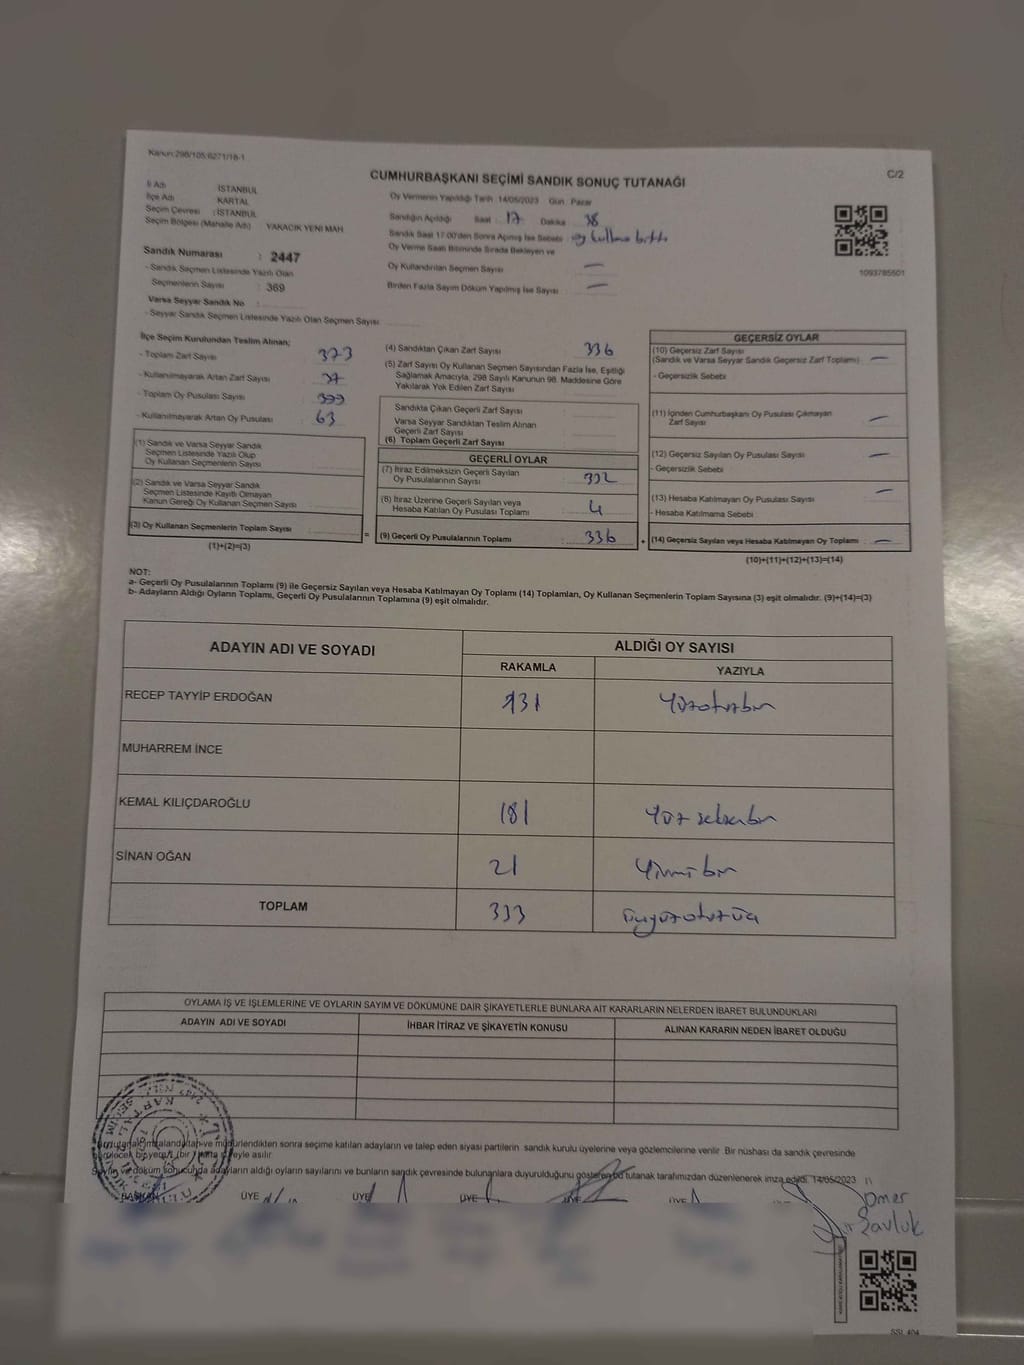 Kanun:298/105;6271/18-1
CUMHURBAŞKANI SEÇİMİ SANDIK SONUÇ TUTANAĞI
C/2
İl Adı : İSTANBUL
İlçe Adı : KARTAL
Seçim Çevresi : İSTANBUL
Seçim Bölgesi (Mahalle Adı) : YAKACIK YENİ MAH.
Oy Vermenin Yapıldığı Tarih 14/05/2023 Gün Pazar
Sandığın Açıldığı Saat : 17 Dakika 38
Sandık Saat 17.00'den Sonra Açılmış İse Sebebi : oy kullanma bitti
Oy Verme Saati Bitiminde Sırada Bekleyen ve
Oy Kullandırılan Seçmen Sayısı —
Birden Fazla Sayım Döküm Yapılmış İse Sayısı —
1093785501
Sandık Numarası : 2447
- Sandık Seçmen Listesinde Yazılı Olan
Seçmenlerin Sayısı : 369
Varsa Seyyar Sandık No :
- Seyyar Sandık Seçmen Listesinde Yazılı Olan Seçmen Sayısı
İlçe Seçim Kurulundan Teslim Alınan;
- Toplam Zarf Sayısı 373
- Kullanılmayarak Artan Zarf Sayısı 37
- Toplam Oy Pusulası Sayısı 399
- Kullanılmayarak Artan Oy Pusulası 63
(1) Sandık ve Varsa Seyyar Sandık
Seçmen Listesinde Yazılı Olup
Oy Kullanan Seçmenlerin Sayısı
(2) Sandık ve Varsa Seyyar Sandık
Seçmen Listesinde Kayıtlı Olmayan
Kanun Gereği Oy Kullanan Seçmen Sayısı
(3) Oy Kullanan Seçmenlerin Toplam Sayısı
=
(1)+(2)=(3)
(4) Sandıktan Çıkan Zarf Sayısı 336
(5) Zarf Sayısı Oy Kullanan Seçmen Sayısından Fazla İse, Eşitliği
Sağlamak Amacıyla, 298 Sayılı Kanunun 98. Maddesine Göre
Yakılarak Yok Edilen Zarf Sayısı
Sandıkta Çıkan Geçerli Zarf Sayısı
Varsa Seyyar Sandıktan Teslim Alınan
Geçerli Zarf Sayısı
(6) Toplam Geçerli Zarf Sayısı
GEÇERLİ OYLAR
(7) İtiraz Edilmeksizin Geçerli Sayılan
Oy Pusulalarının Sayısı 332
(8) İtiraz Üzerine Geçerli Sayılan veya
Hesaba Katılan Oy Pusulası Toplamı 4
(9) Geçerli Oy Pusulalarının Toplamı 336
+
GEÇERSİZ OYLAR
(10) Geçersiz Zarf Sayısı
(Sandık ve Varsa Seyyar Sandık Geçersiz Zarf Toplamı) —
- Geçersizlik Sebebi
(11) İçinden Cumhurbaşkanı Oy Pusulası Çıkmayan
Zarf Sayısı —
(12) Geçersiz Sayılan Oy Pusulası Sayısı —
- Geçersizlik Sebebi
(13) Hesaba Katılmayan Oy Pusulası Sayısı —
- Hesaba Katılmama Sebebi
(14) Geçersiz Sayılan veya Hesaba Katılmayan Oy Toplamı —
(10)+(11)+(12)+(13)=(14)
NOT:
a- Geçerli Oy Pusulalarının Toplamı (9) ile Geçersiz Sayılan veya Hesaba Katılmayan Oy Toplamı (14) Toplamları, Oy Kullanan Seçmenlerin Toplam Sayısına (3) eşit olmalıdır. (9)+(14)=(3)
b- Adayların Aldığı Oyların Toplamı, Geçerli Oy Pusulalarının Toplamına (9) eşit olmalıdır.
ADAYIN ADI VE SOYADI
ALDIĞI OY SAYISI
RAKAMLA
YAZIYLA
RECEP TAYYİP ERDOĞAN 131 Yüzotuzbir
MUHARREM İNCE
KEMAL KILIÇDAROĞLU 181 Yüz seksenbir
SİNAN OĞAN 21 Yirmi bir
TOPLAM 333 üçyüzotuzüç
OYLAMA İŞ VE İŞLEMLERİNE VE OYLARIN SAYIM VE DÖKÜMÜNE DAİR ŞİKAYETLERLE BUNLARA AİT KARARLARIN NELERDEN İBARET BULUNDUKLARI
ADAYIN ADI VE SOYADI
İHBAR İTİRAZ VE ŞİKAYETİN KONUSU
ALINAN KARARIN NEDEN İBARET OLDUĞU
sonra seçime katılan adayların ve talep eden siyasi partilerin sandık kurulu üyelerine veya gözlemcilerine verilir. Bir nüshası da sandık çevresinde
asılır.
adayların aldığı oyların sayılarını ve bunların sandık çevresinde bulunanlara duyurulduğunu gösteren bu tutanak tarafımızdan düzenlenerek imza edildi. 14/05/2023
BAŞKAN ÜYE ÜYE ÜYE ÜYE ÜYE
Ömer
Savluk